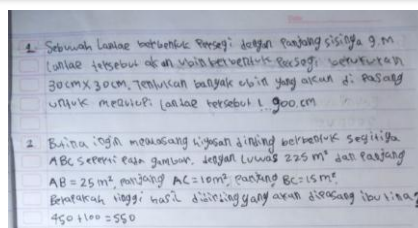 1 Sebuwah Lantae berbentuk Persegi dengan Panjang sisinya 9 m
Lantae tersebut akan ubin berbentuk Persegi berukuran
30 cm x 30 cm, Tentukan banyak ubin yang akan di Pasang
untuk menutupi lantae tersebut ! 900.cm
2 Butina ingin memasang higosan dinding berbentuk segitiga
ABC seperti Pada gambar. dengan Luwas 225 m² dan Panjang
AB = 25 m², panjang AC = 10 m², panjang BC = 15 m²
Berapakah tinggi hasil dinding yang akan dipasang ibu tina?
450 + 100 = 550